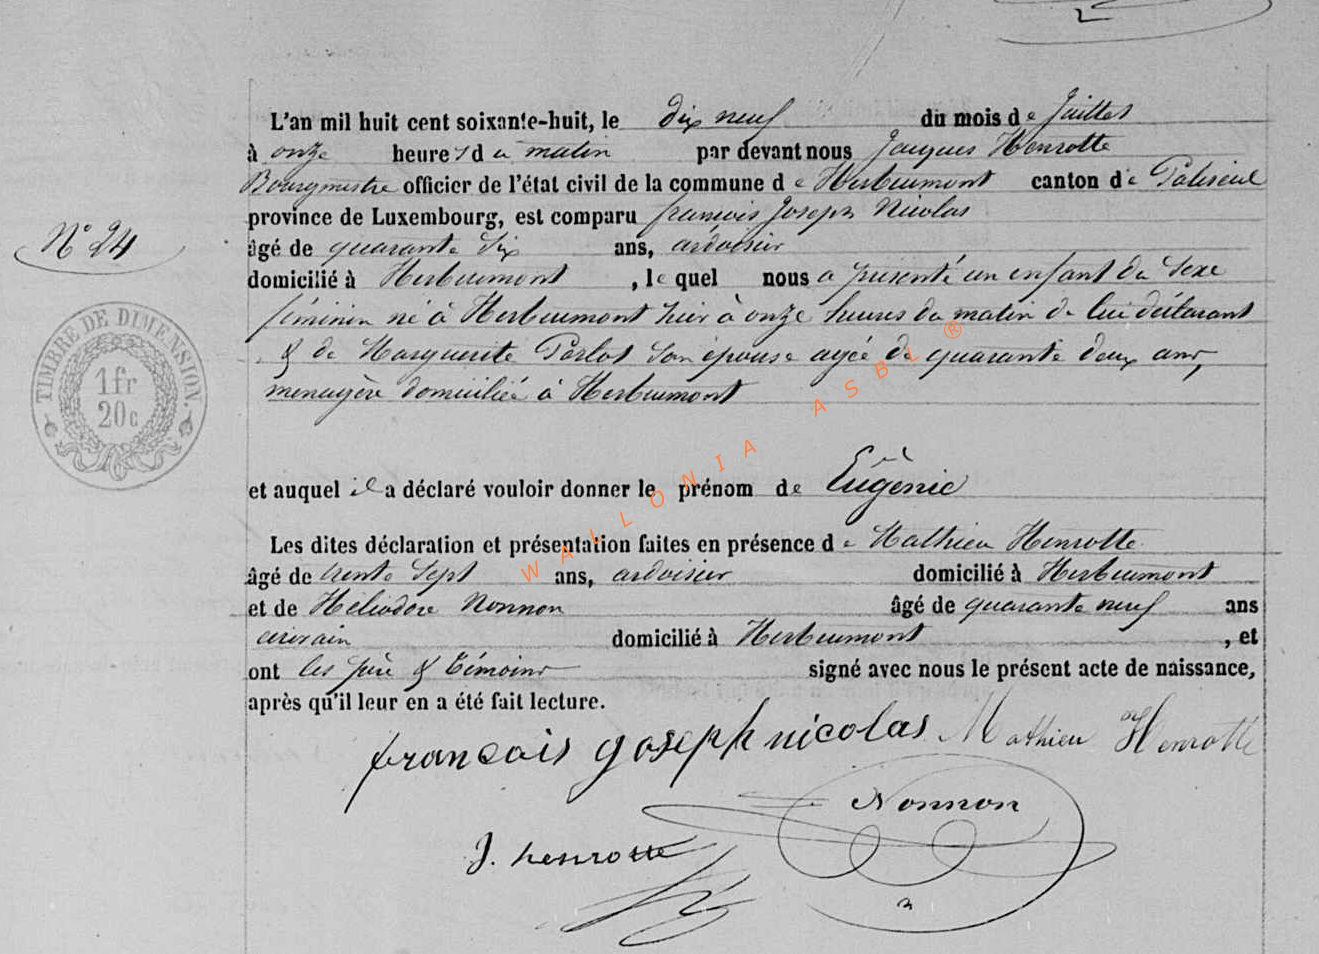 L'an mil huit cent soixante-huit, le dix neuf du mois de Juillet
à onze heures du matin par devant nous Jacques Henrotte
Bourgmestre officier de l'état civil de la commune de Herbeumont canton de Paliseul
province de Luxembourg, est comparu françois Joseph Nicolas
N° 24
âgé de quarante six ans, ardoisier
domicilié à Herbeumont, lequel nous a présenté un enfant du sexe
féminin né à Herbeumont hier à onze heures du matin de lui déclarant
& de Marguerite Perlot son épouse agée de quarante deux ans,
menagère domiciliée à Herbeumont
TIMBRE DE DIMENSION.
1fr
20c
WALLONIA ASBL ®
et auquel il a déclaré vouloir donner le prénom de Eugénie
Les dites déclaration et présentation faites en présence de Mathieu Henrotte
âgé de trente sept ans, ardoisier domicilié à Herbeumont
et de Héliodore Nonnon âgé de quarante neuf ans
domicilié à Herbeumont, et
ont les père & témoins signé avec nous le présent acte de naissance,
après qu'il leur en a été fait lecture.
francois joseph nicolas Mathieu Henrotte
Nonnon
J. henrotte